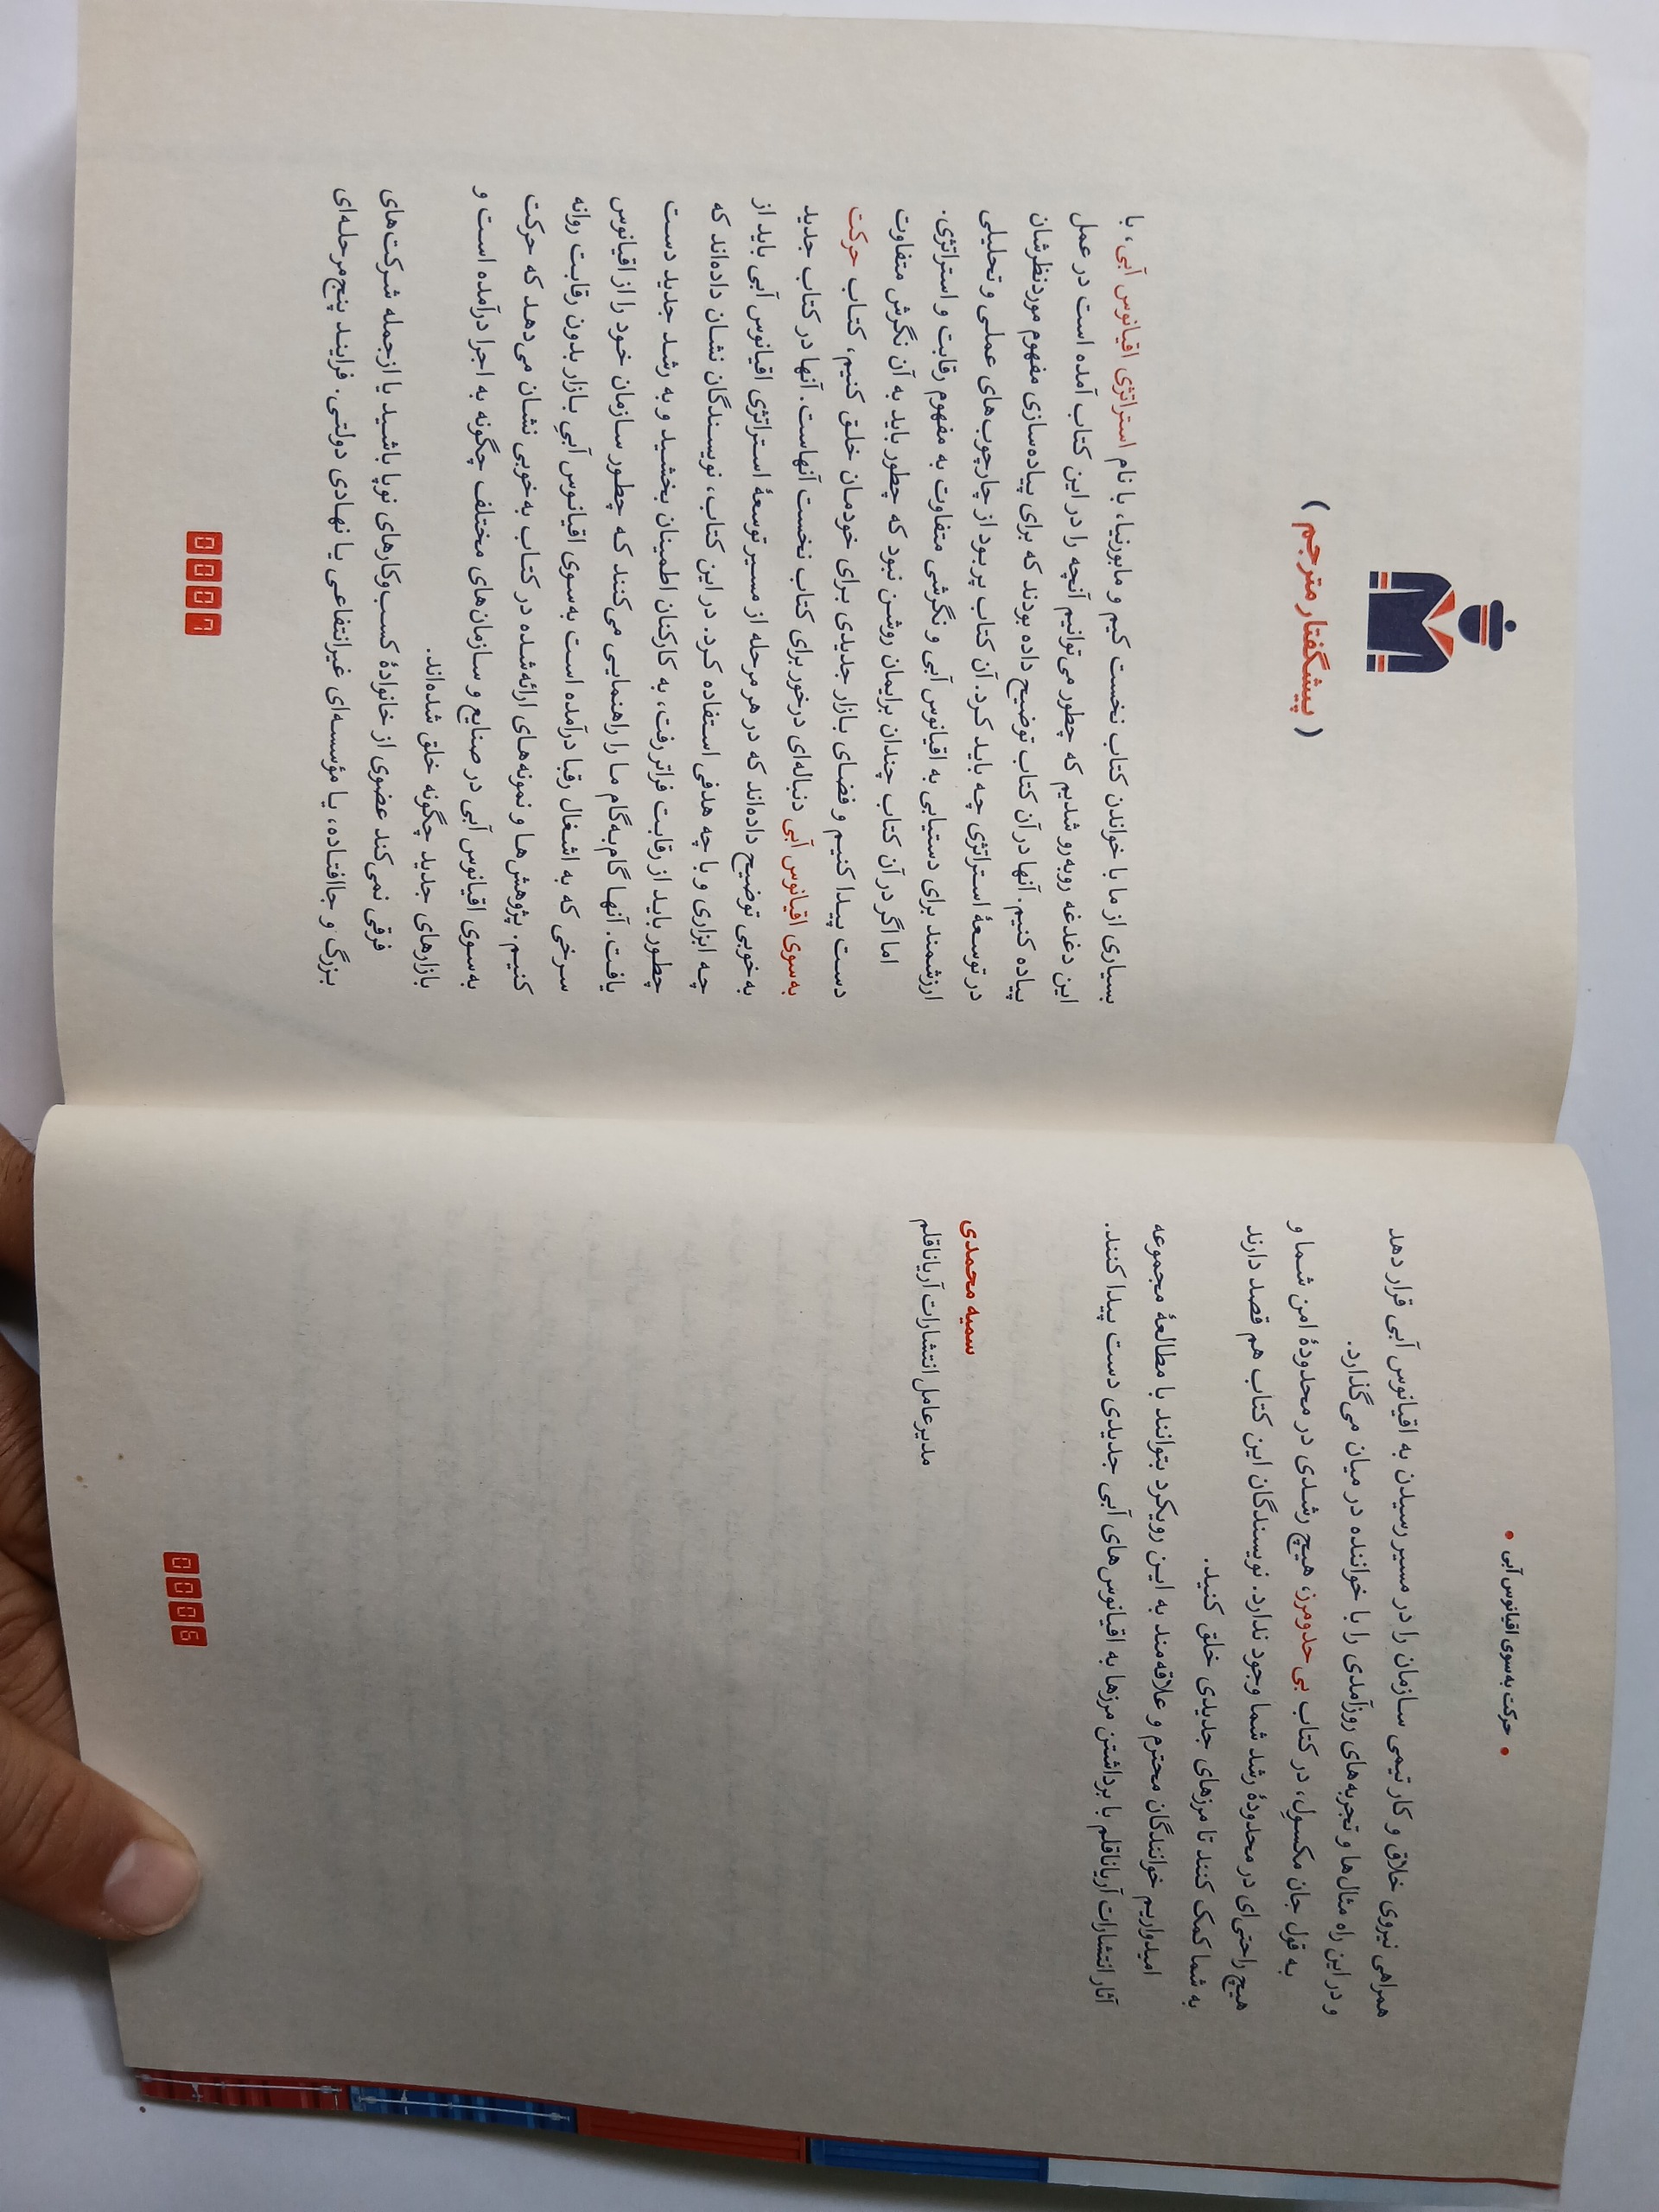 • حرکت به‌سوی اقیانوس آبی •
همراهی نیروی خلاق و کار تیمی سازمان را در مسیر رسیدن به اقیانوس آبی قرار دهد
و در این راه مثال‌ها و تجربه‌های روزآمدی را با خواننده در میان می‌گذارد.
به قول جان مکسول، در کتاب بی‌حدومرز، هیچ رشدی در محدودهٔ امن شما و
هیچ راحتی‌ای در محدودهٔ رشد شما وجود ندارد. نویسندگان این کتاب هم قصد دارند
به شما کمک کنند تا مرزهای جدیدی خلق کنید.
امیدواریم خوانندگان محترم و علاقه‌مند به این رویکرد بتوانند با مطالعهٔ مجموعه
آثار انتشارات آریاناقلم با برداشتن مرزها به اقیانوس‌های آبی جدیدی دست پیدا کنند.
سمیه محمدی
مدیرعامل انتشارات آریاناقلم
0006
( پیشگفتار مترجم )
بسیاری از ما با خواندن کتاب نخست کیم و مابورنیا، با نام استراتژی اقیانوس آبی، با
این دغدغه روبه‌رو شدیم که چطور می‌توانیم آنچه را در این کتاب آمده است در عمل
پیاده کنیم. آنها در آن کتاب توضیح داده بودند که برای پیاده‌سازی مفهوم موردنظرشان
در توسعهٔ استراتژی چه باید کرد. آن کتاب پر بود از چارچوب‌های عملی و تحلیلی
ارزشمند برای دستیابی به اقیانوس آبی و نگرشی متفاوت به مفهوم رقابت و استراتژی.
اما اگر در آن کتاب چندان برایمان روشن نبود که چطور باید به آن نگرش متفاوت
دست پیدا کنیم و فضای بازار جدیدی برای خودمان خلق کنیم، کتاب حرکت
به‌سوی اقیانوس آبی دنباله‌ای درخور برای کتاب نخست آنهاست. آنها در کتاب جدید
به‌خوبی توضیح داده‌اند که در هر مرحله از مسیر توسعهٔ استراتژی اقیانوس آبی باید از
چه ابزاری و با چه هدفی استفاده کرد. در این کتاب، نویسندگان نشان داده‌اند که
چطور باید از رقابت فراتر رفت، به کارکنان اطمینان بخشید و به رشد جدید دست
یافت. آنها گام‌به‌گام ما را راهنمایی می‌کنند که چطور سازمان خود را از اقیانوس
سرخی که به اشغال رقبا درآمده است به‌سوی اقیانوس آبیِ بازار بدون رقابت روانه
کنیم. پژوهش‌ها و نمونه‌های ارائه‌شده در کتاب به‌خوبی نشان می‌دهد که حرکت
به‌سوی اقیانوس آبی در صنایع و سازمان‌های مختلف چگونه به اجرا درآمده است و
بازارهای جدید چگونه خلق شده‌اند.
فرقی نمی‌کند عضوی از خانوادهٔ کسب‌وکارهای نوپا باشید یا ازجمله شرکت‌های
بزرگ و جاافتاده، یا مؤسسه‌ای غیرانتفاعی یا نهادی دولتی. فرایند پنج‌مرحله‌ای
0007